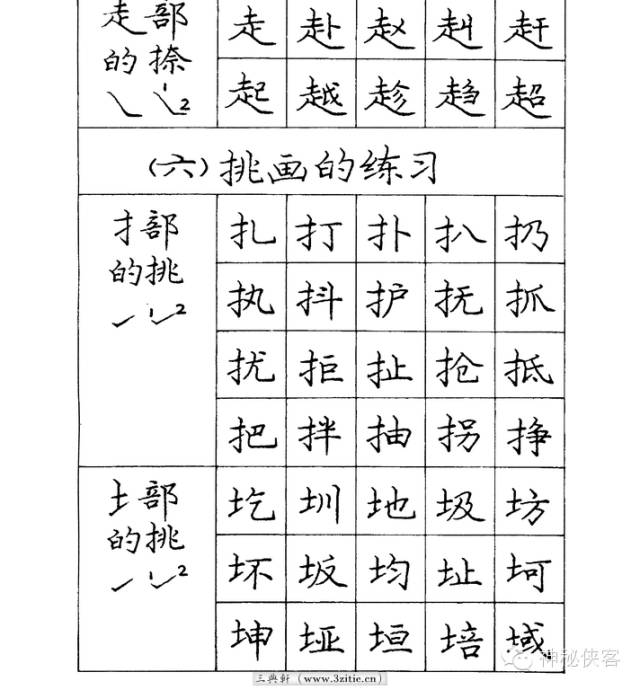 走部 走 赴 赵 赳 赶
的捺 起 越 趁 趋 超
1 2
(六)挑画的练习
扌部 扎 打 扑 扒 扔
的挑 执 抖 护 抚 抓
1 2
扰 拒 扯 抢 抵
把 拌 抽 拐 挣
土部 圪 圳 地 圾 坊
的挑 坏 坂 均 址 坷
1 2
坤 垭 垣 培 域
神秘侠客
三典轩 (www.3zitie.cn)